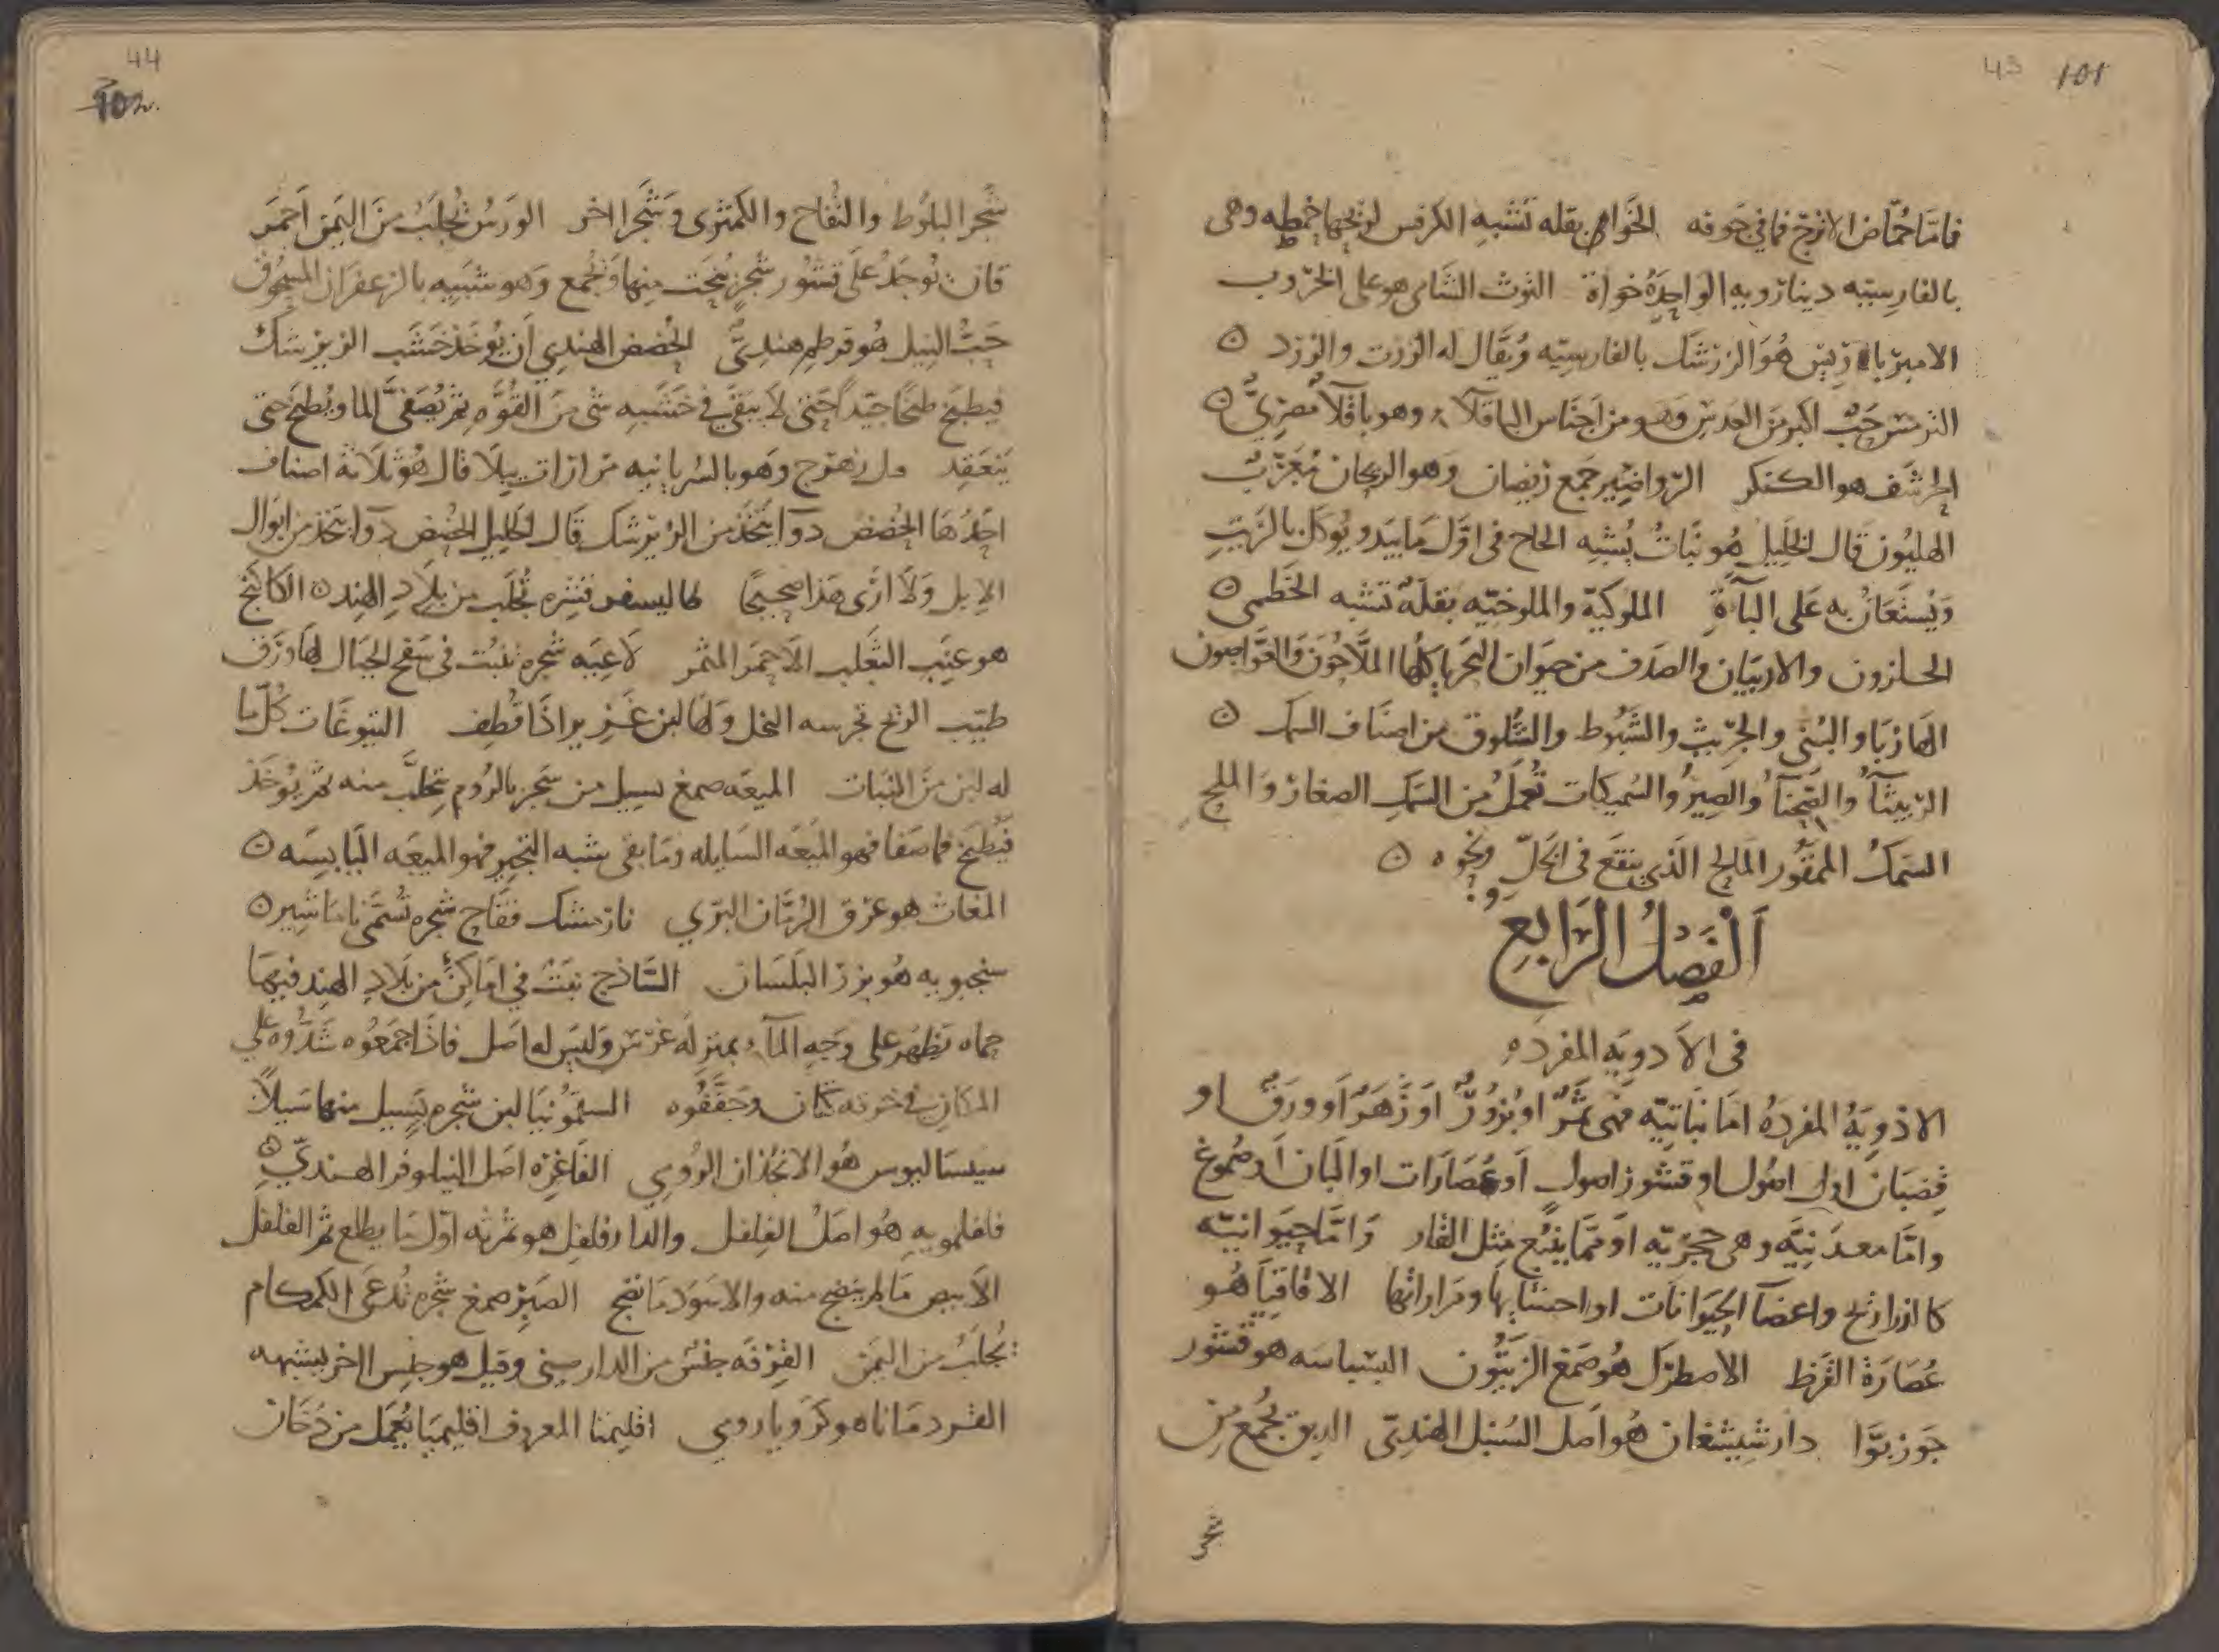 43 101
فامّا حُمّاض الاترج فما في جوفه الخَواص بقله تشبه الكرفس لريحها خمطه وهي
بالفارسيّه دينارويه الواحِدَةُ خَواة التوث الشامي هو على الخرّوب
الامبرباريس هُوَ الزرشك بالفارسيّه ويُقَال له الزرت والزرد ٥
الترمس حَبٌّ اكبر من العدس وهو من اجناس الباقلاء وهو باقلاء مصريٌّ ٥
الحرشف هو الكنكر الرواضير جَمع ريصار وهو الريحان مُعَرّبٌ
الهليون قَال الخَليل هُو نَباتٌ يُشبه الحاج في اوّل مَا يَبدو يُوكل بالزيتِ
وَيُستَعَانُ به عَلى البآءَةِ الملوكيّة والملوخيّه بقلةٌ تشبه الخَطمى ٥
الحلزون والاربيان والصدف من حيوان البَحر ياكلها الملّاحُونَ وَالغَوّاصون
الهازبا والبُنّي والجرّيث والشَبّوط والشّلوق من اصنَاف السمك ٥
الرّبيثآ والصِّحنَآ والصِيرُ والسُميكات تُعمَل مِن السَمك الصغار وَالملح
السَمَكُ المَمقُور المَالح الّذي ينقع في الخَلّ ونحوه ٥
اَلفَصلُ الرَابع
في الاَدويَه المفرده
الادويَةُ المفردَهُ امَا نباتيّه فهى ثَمَرٌ او بُزُورٌ او زَهَرٌ اَو ورَقٌ او
قُضبَان او اصُول او قشور اصولٍ اَو عُصَارَات او البَان اَو صُموغ
وامّا معدنيّه وهي حجريّه او مِمّا ينبُع مثل القار وَامَّا حيَوانيّه
كالذراريح واعضآ الحَيَوانات او احشائِها ومراراتها الاقاقيَا هُو
عُصَارَة القرَظ الاصطرَك هُو صَمغ الزيتُون البسباسَه هو قشور
جَوزبوّا دارشيشغان هُو اَصل السُنبل الهنديّ الدبق يُجمع مِن
شجر
44
102
شَجر البلّوط والتُفاح والكمثرى وَشَجر اخر الوَرسُ يُجلَبُ مِنَ اليَمَن اَحمَر
قان يُوجَدُ عَلى قشور شَجَرٍ يُنحَت منها وَيُجمع وَهو شَبيه بالزعفرَان المسحُوق
حَبُّ النيل هُو قرطم هنديٌّ الحُضض الهندي اَن يُوخَذ خَشَب الزيرشك
فيطبَخ طبخًا جيّداً حَتى لاَ يَبقَى في خَشَبِه شى مِن القُوَّه ثمّ يُصَفَّى الما ويُطبخ حتى
يَنعَقِد وَهو بالسُريانيه قَال هُو ثلاثة اصناف
احَدُهَا الحُضض دوآ يتخَذ من الزيرشك قَال الخَليل الحُضض دوآ يتخذ من ابوال
الاِبل وَلاَ ارَى هَذا صَحيحًا كاليسفر قشره تُجلَب من بِلاَد الهِند ٥ الكاكنج
هو عنَب الثَعلب الاَحمَر المثمر لاَعيَه شجره تنبُت في سَفح الجبَال لهَا وَرَق
طيّب الريح تجرسه النحل وَلها لبن غَزير اذَا قُطِف اليتوعَات كُلّ ما
له لبن مِنَ النّبَات الميعَه صَمغ يسيل من شَجَر بالرُوم يُحلَّب منه ثمّ يُوخذ
فيُطبَخ فما صَفا فهو الميعَه السَايله ومَا بقى شبه الثجير فهو الميعَه اليَابسَه ٥
المغاث هو عرق الرُمّان البرّي نارمشك فقاح شجره تُسَمّى نَامَاشير ٥
سنجبويه هُو بزر البلَسَان السَّاذج نبتٌ في امَاكن من بلاَد الهند فيهَا
حماه يَظهَر على وَجه المآء بمنزلة عَدَس وليس له اَصل فاذَا جَمَعُوه شَدُّوه على
المكان في خرقة كتّان وجَفَّفُوه السقمُونيَا لبن شجره يَسِيل منها سَيلاً
سيساليوس هُو الانجُذان الرُومي الفَاغِرَه اصَل النيلوفر الهنديّ ٥
فلفلمويه هُو اصلُ الفلفل والدارفلفل هو ثمَرته اوّل مَا يطلع ثمر الفلفل
الاَبيض مَا لم ينضج منه والاسَود مَا نضج الصَبر صَمغ شجره تُدعَى الكمكام
يُجلَبُ من اليَمن القِرفَه جنس من الدارصيني وقيل هو جنس اخر يشبهه
القردمانا هو كَرَويا رومي اقليميا المعروف اقليميَا يُعمَل من دُخَان